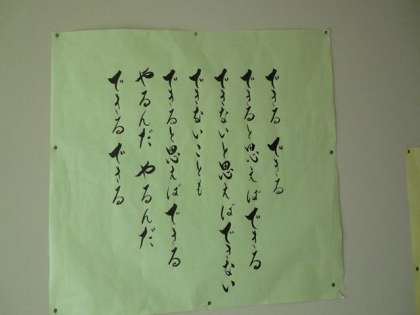 できる できる
できると思えばできる
できないと思えばできない
できないことも
できると思えばできる
やるんだ やるんだ
できる できる